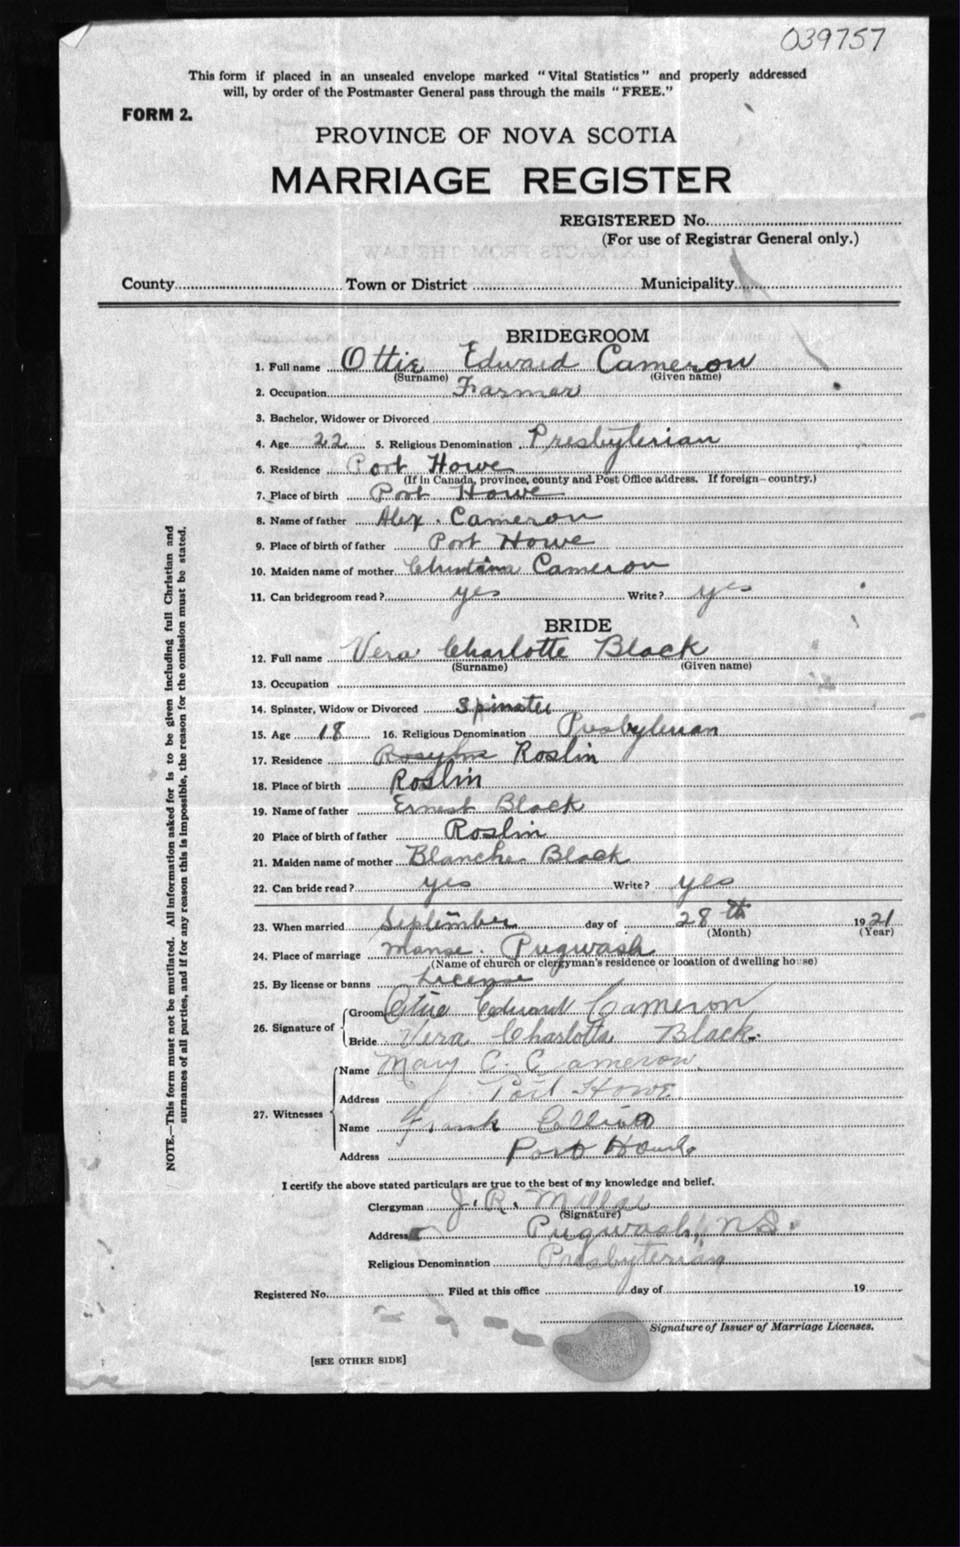 039757
This form if placed in an unsealed envelope marked "Vital Statistics" and properly addressed
will, by order of the Postmaster General pass through the mails "FREE."
FORM 2.
PROVINCE OF NOVA SCOTIA
MARRIAGE REGISTER
REGISTERED No.
(For use of Registrar General only.)
County Town or District Municipality
BRIDEGROOM
1. Full name Ottie Edward Cameron
(Surname) (Given name)
2. Occupation Farmer
3. Bachelor, Widower or Divorced
4. Age 22 5. Religious Denomination Presbyterian
6. Residence Port Howe
(If in Canada, province, county and Post Office address. If foreign—country.)
7. Place of birth Port Howe
8. Name of father Alex. Cameron
9. Place of birth of father Port Howe
10. Maiden name of mother Cameron
11. Can bridegroom read? yes Write? yes
BRIDE
12. Full name Vera Charlotte Black
(Surname) (Given name)
13. Occupation
14. Spinster, Widow or Divorced Spinster
15. Age 18 16. Religious Denomination Presbyterian
17. Residence Roslin
18. Place of birth Roslin
19. Name of father Ernest Black
20 Place of birth of father Roslin
21. Maiden name of mother Blanche Black
22. Can bride read? yes Write? yes
23. When married September day of 28th 1921
(Month) (Year)
24. Place of marriage Manse. Pugwash
(Name of church or clergyman's residence or location of dwelling house)
25. By license or banns License
26. Signature of
Groom Ottie Edward Cameron
Bride Vera Charlotte Black
27. Witnesses
Name Mary C. Cameron
Address Port Howe
Name Frank
Address Port Howe
I certify the above stated particulars are true to the best of my knowledge and belief.
Clergyman J. R. Millar
(Signature)
Address Pugwash, N.S.
Religious Denomination Presbyterian
Registered No. Filed at this office day of 19
Signature of Issuer of Marriage Licenses.
[SEE OTHER SIDE]
NOTE.—This form must not be mutilated. All information asked for is to be given including full Christian and
surnames of all parties, and if for any reason this is impossible, the reason for the omission must be stated.